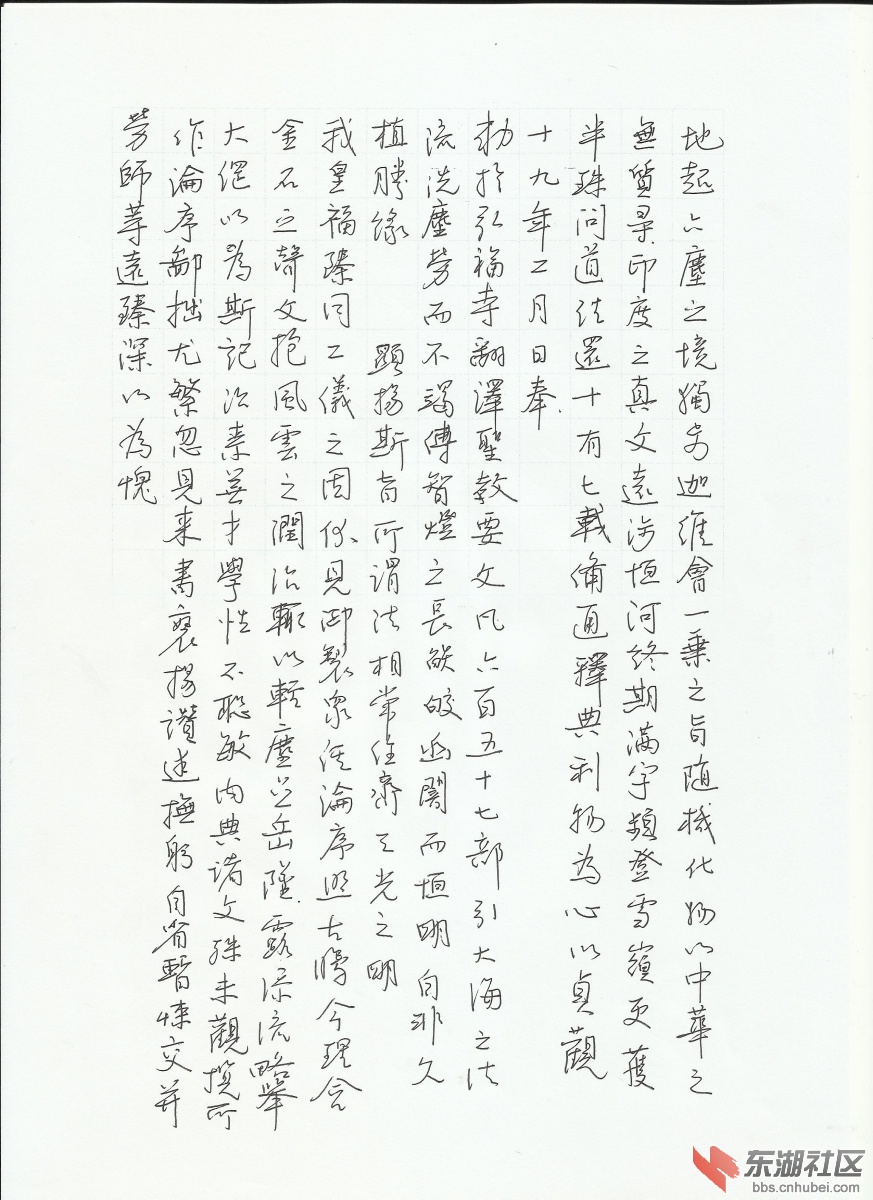 地起六塵之境獨步迦維會一乗之旨随機化物以中華之
無質尋印度之真文遠涉恒河終期滿字頻登雪嶺更獲
半珠問道法還十有七載備通釋典利物為心以貞觀
十九年二月日奉
勅於弘福寺翻譯聖教要文凡六百五十七部引大海之法
流洗塵勞而不竭傳智燈之長焰皎幽闇而恒明自非久
植勝緣 顯揚斯旨所謂法相常住齊三光之明
我皇福臻同二儀之固伏見御製衆经論序照古騰今理含
金石之聲文抱風雲之潤治輒以輕塵足岳墜露添流略舉
大綱以為斯記治素無才學性不聡敏内典諸文殊未觀攬所
作論序鄙拙尤繁忽見来書褒揚讚述撫躬自省慙悚交并
勞師等遠臻深以為愧
东湖社区
bbs.cnhubei.com